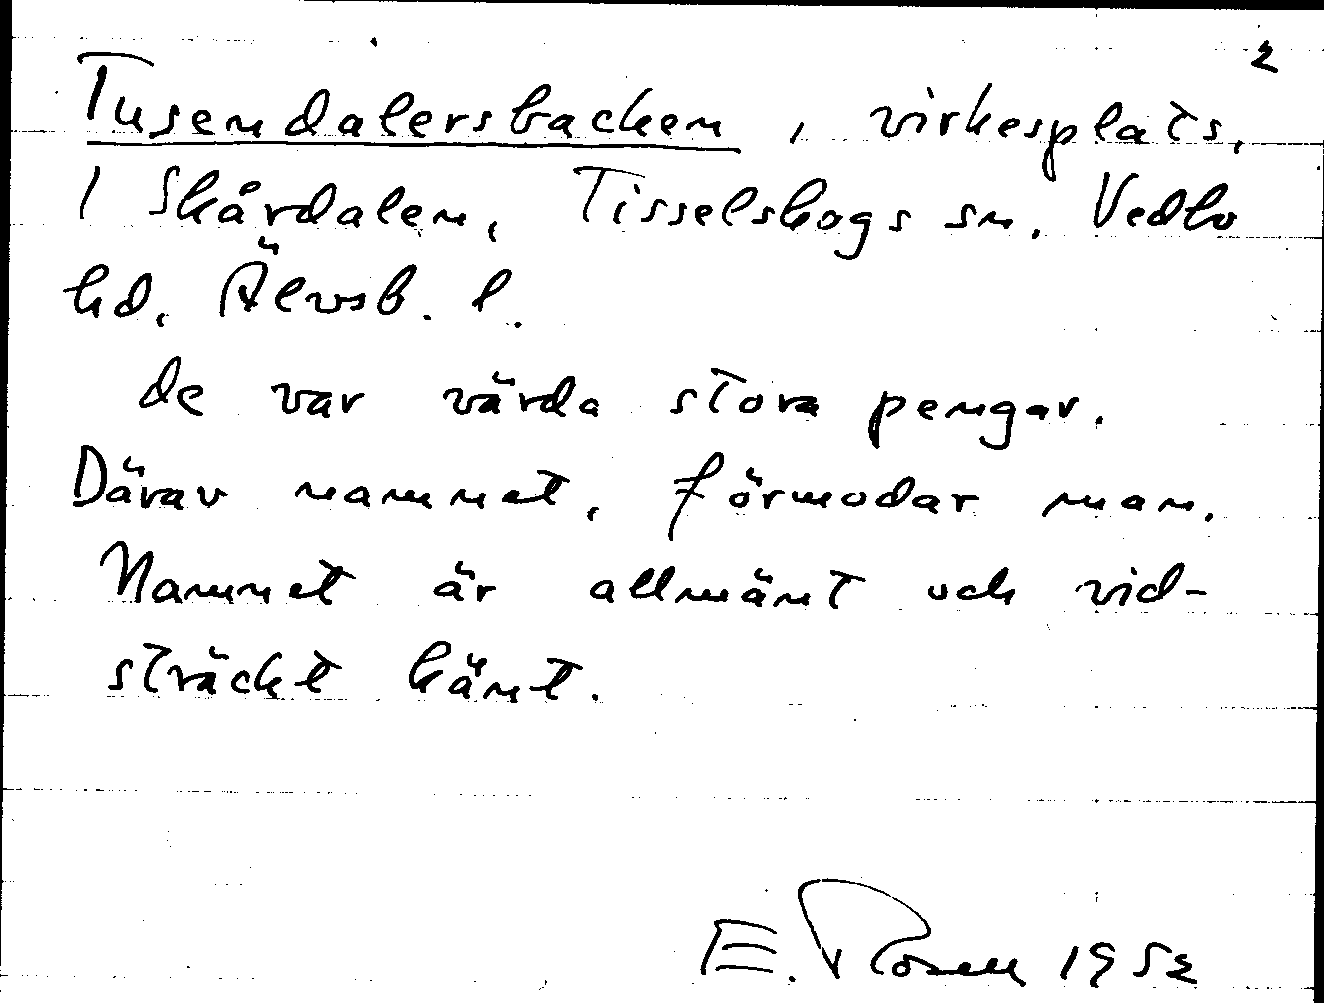 2
Tusendalersbacken, virkesplats,
I Skårdalen, Tisselskogs sn. Vedbo
hd. Älvsb. l.
de var värda stora pengar.
Därav namnet, förmodar man.
Namnet är allmänt och vid-
sträckt känt.
E. Rosell 1952